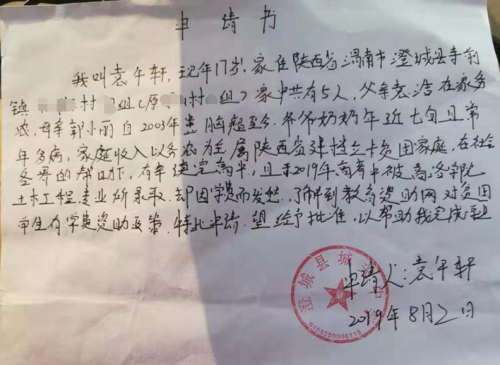 申请书
我叫袁午轩,现年17岁,家住陕西省渭南市澄城县寺前
镇 村 组(原 村 组)家中共有5人,父亲袁浩在家务
农,母亲郭小丽自2003年患脑瘤至今,爷爷奶奶年近七旬且常
年多病,家庭收入以务农为主属陕西省建档立卡贫困家庭,在社
会各界的帮助下,有幸读完高中,且于2019年高考中被 学院
土木工程专业所录取,却因学费而发愁,了解到教育资助网对贫困
学生有学费资助政策,特此申请,望给予批准,以帮助我完成学业
申请人:袁午轩
2019年8月2日
澄城县城 中
6105250006113